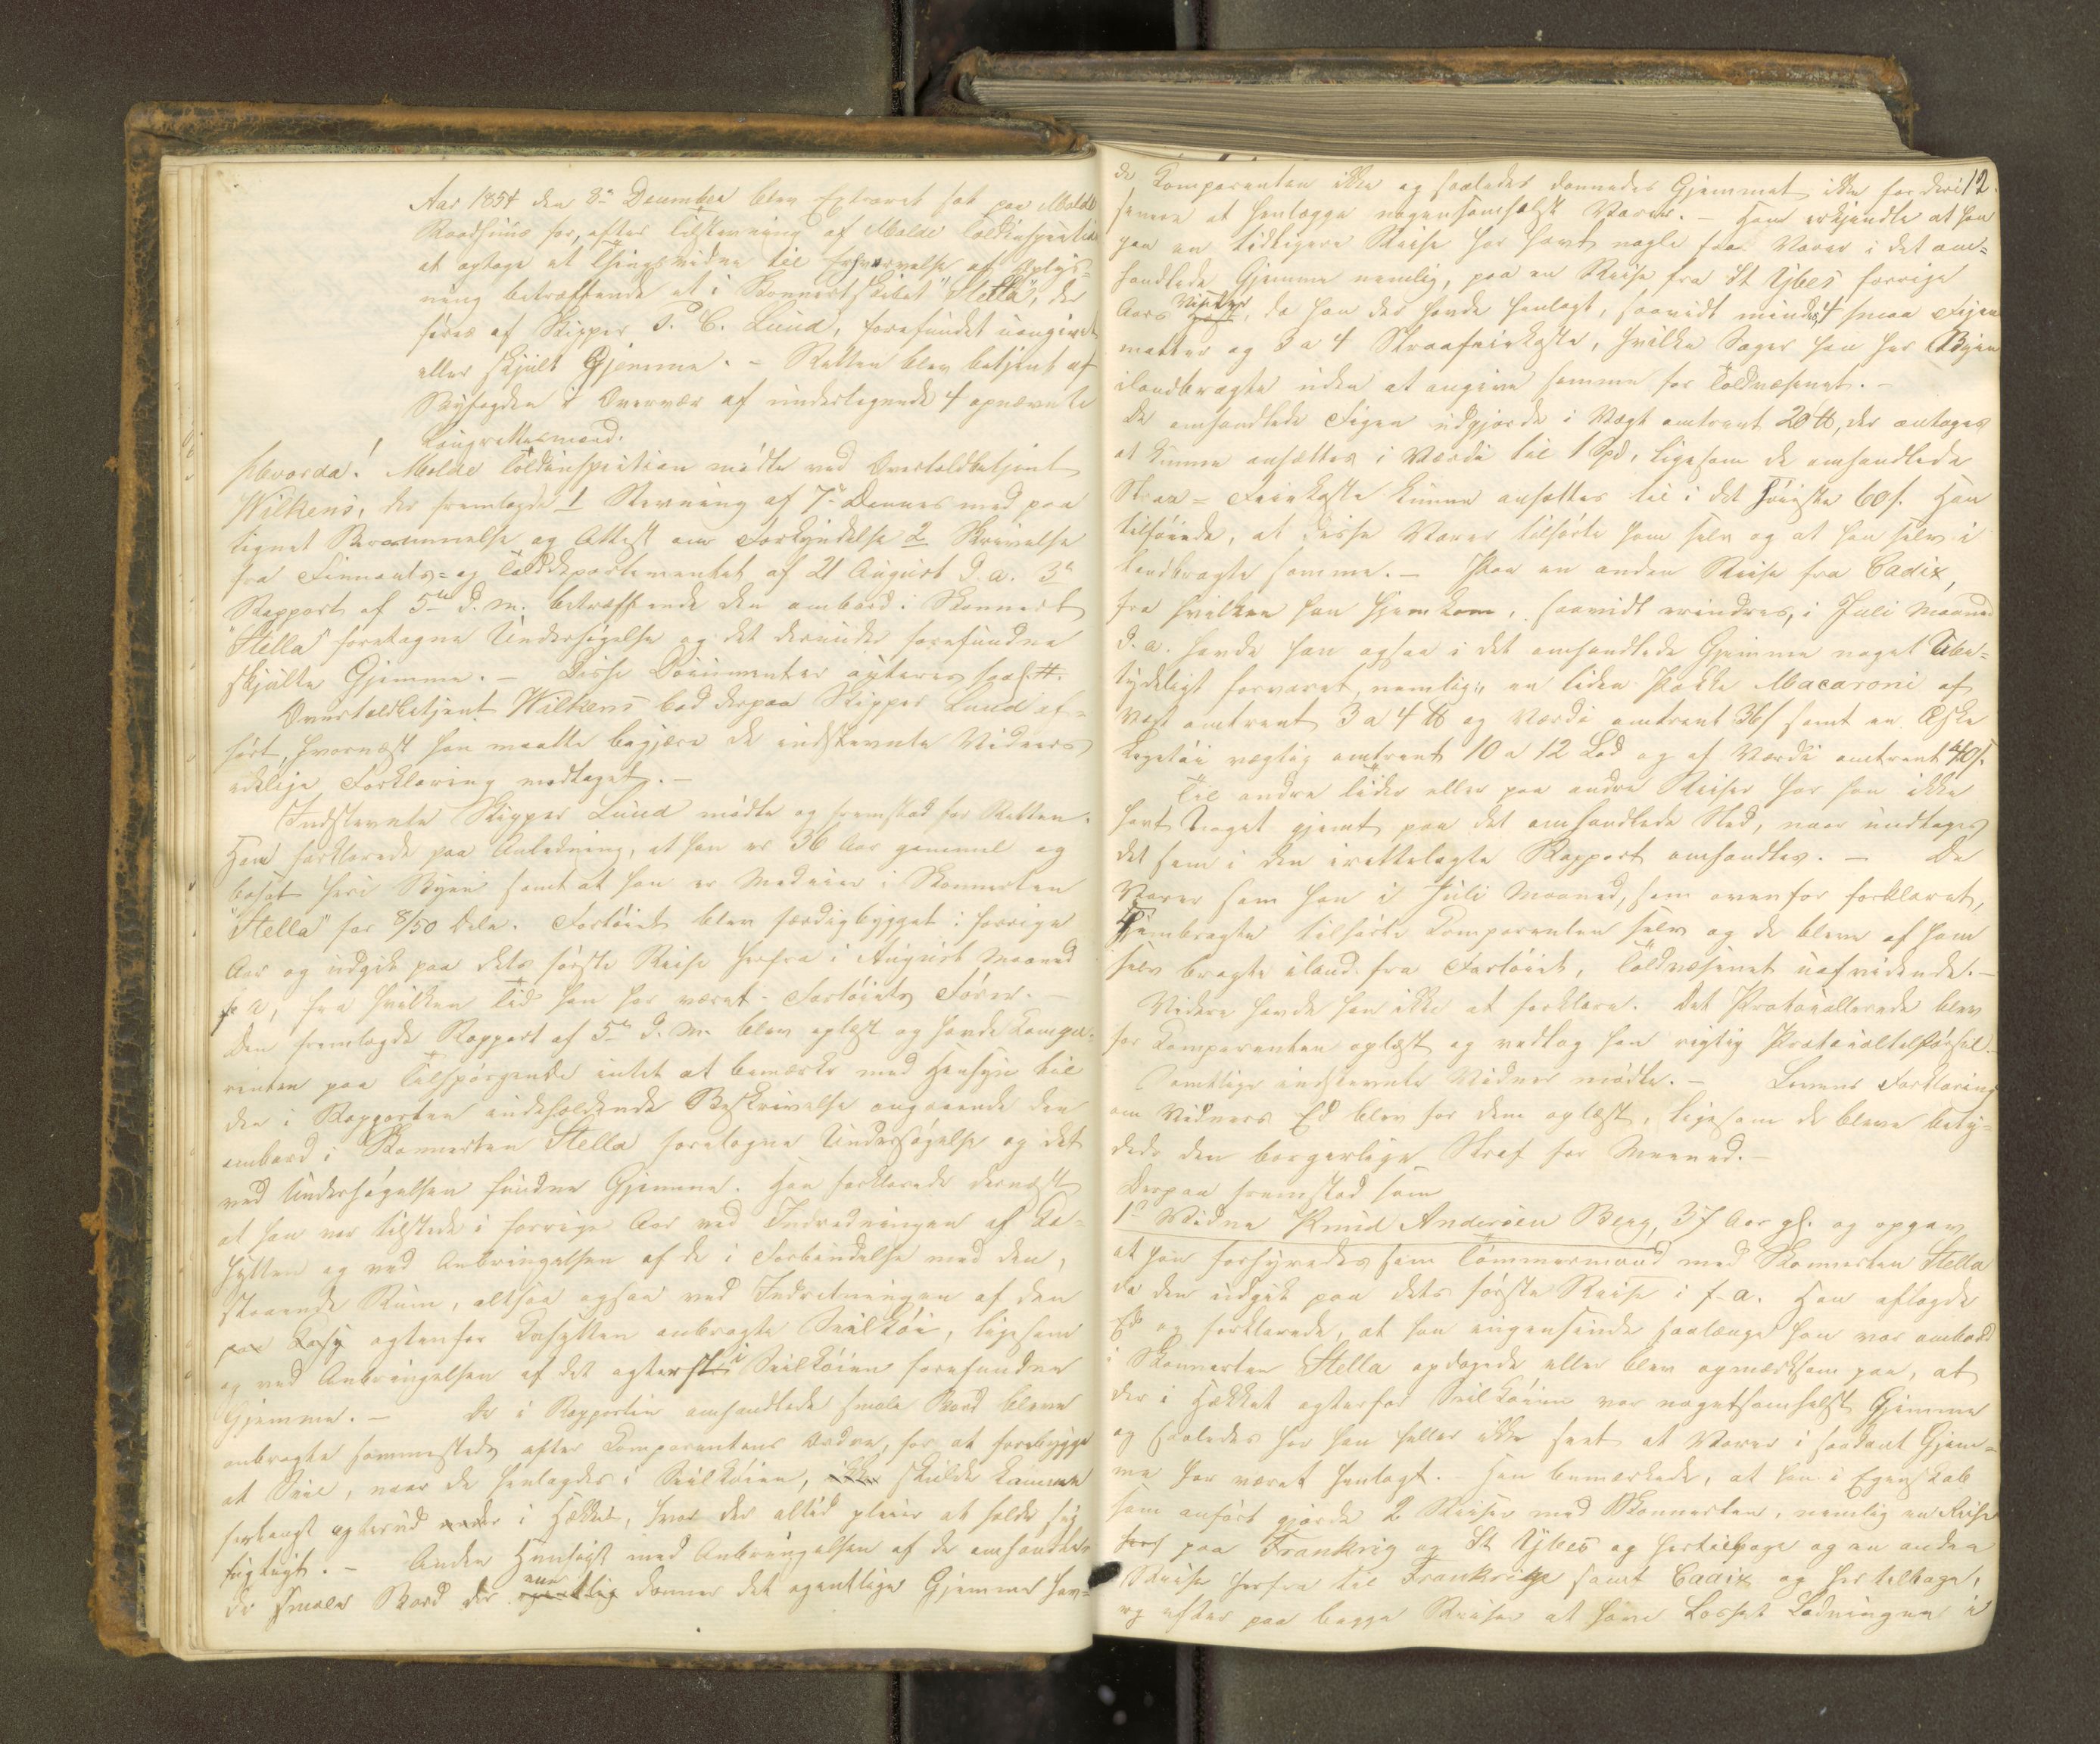 Aar 1854 den 8de December blev Extraret sat paa Molde
Raadhuus for, efter Tilstevning af Molde Toldinspection
at optage et Thingsvidne til Erhvervelse af Oplys-
ning betræffende et i Skonnertskibet "Stella", der
føres af Skipper P. C. Lund, forefundet uangivet
eller skjult Gjemme. - Retten blev betjent af
Byfogden i Overvær af undertegnede 4 opnævnte
Laugrettesmænd.
Hvorda! Molde Toldinspection mødte ved Overtoldbetjent
Wilkens, der fremlagde 1 Stevning af 7de Dennes med paa
tegnet Berammelse og Attest om Forkyndelse 2 Skrivelse
fra Finants- og Tolddepartementet af 21 August d. a. 3de
Rapport af 5te d. m. betræffende den ombord i Skonnert
"Stella" foretagne Undersøgelse og det derunder forefundne
skjulte Gjemme. - Disse Documenter acteres saal. #.
Overtoldbetjent Wilkens bad derpaa Skipper Lund af-
hørt, hvornæst han maatte begjære de indstevnte Vidners
edelige Forklaring modtaget. -
Indstevnte Skipper Lund mødte og fremstod for Retten.
Han forklarede paa Anledning, at han er 36 Aar gammel og
bosat her i Byen samt at han er Medeier i Skonnerten
"Stella" for 8/50 Dele. Fartøiet blev færdigbygget i forrige
Aar og udgik paa dets første Reise herfra i August Maaned
f. a., fra hvilken Tid han har været Fartøiets Fører. -
Den fremlagde Rapport af 5te d. M. blev oplæst og havde Compa-
renten paa Tilspørgende intet at bemærke med Hensyn til
den i Rapporten indeholdende Beskrivelse angaaende den
ombord i Skonnerten Stella foretagne Undersøgelse og det
ved Undersøgelsen fundne Gjemme. Han forklarede dernæst
at han var tilstede i forrige Aar ved Indredningen af Ka-
hytten og ved Anbringelsen af de i Forbindelse med den,
staaende Rum, altsaa ogsaa ved Indretningen af den
agtenfor Kahytten anbragte Seilkøi, ligesom
og ved Anbringelsen af det agterst i Seilkøien forefundne
Gjemme. - De i Rapporten omhandlede smale Bord bleve
anbragte sammesteds efter Comparentens Ordre, for at forebygge
at Seil, naar de henlagdes i Seilkøien, skulde komme
forlangt agterud i Hækken, hvor der altid pleier at holde sig
fugtigt. - Anden Hensigt med Anbringelsen af de omhandle-
de smale Bord der danner det egentlige Gjemme hav-
12.
de Comparenten ikke og saaledes dannedes Gjemmet ikke for deri
senere at henlægge nogensomhelst Varer. - Han erkjendte at han
paa en tidligere Reise har havt nogle faa Varer i det om-
handlede Gjemme nemlig, paa en Reise fra St Ybes forrige
Aars Vinter, da han der havde henlagt, saavidt mindes 4 smaa Figen
matter og 3 a 4 Straafeiekoste, hvilke Sager han her i Byen
ilandbragte uden at angive samme for Toldvæsenet. -
De omhandlede Figen udgjorde i Vægt omtrent 20 ℔, der antages
at kunne ansættes i Værdi til 1 Spd, ligesom de omhandlede
Straa-Feiekoste kunne ansættes til i det høieste 60 s. Han
tilføiede, at disse Varer tilhørte ham selv og at han selv i
landbragte samme. - Paa en anden Reise fra Cadix,
fra hvilken han hjemkom, saavidt erindres, i Juli Maaned
d. a. havde han ogsaa i det omhandlede Gjemme noget Ube-
tydeligt forvaret, nemlig: en liden Pakke Macaroni af
Vægt omtrent 3 a 4 ℔ og Værdi omtrent 36 s samt en Æske
Legetøi vægtig omtrent 10 a 12 Lod og af Værdi omtrent 40 s.
Til andre Tider eller paa andre Reiser har han ikke
havt Noget gjemt paa det omhandlede Sted, naar undtages
det som i den irettelagte Rapport omhandles. - De
Varer som han i Juli Maaned, som ovenfor forklaret,
hjembragte tilhørte Comparenten selv og de bleve af ham
selv bragte iland fra Fartøiet, Toldvæsenet uafvidende. -
Videre havde han ikke at forklare. Det Protocollerede blev
for Comparenten oplæst og vedtog han rigtig Protocoltilførsel. -
Samtlige indstevnte Vidner mødte. - Lovens Forklaring
om Vidners Ed blev for dem oplæst, ligesom de bleve bety-
dede den borgerlige Straf for Meened. -
Derpaa fremstod som
1ste Vidne Knud Andersen Berg, 37 Aar gl. og opgav
at han forhyredes som Tømmermand med Skonnerten Stella
da den udgik paa dets første Reise i f. a. Han aflagde
Ed og forklarede, at han ingensinde saalænge han var ombord
i Skonnerten Stella opdagede eller blev opmærksom paa, at
der i Hækket agterfor Seilkøien var nogetsomhelst Gjemme
og saaledes har han heller ikke seet at Varer i saadant Gjem-
me har været henlagt. Han bemærkede, at han i Egenskab
som anført gjorde 2 Reiser med Skonnerten, nemlig en Reise
paa Frankrig og St Ybes og hertilbage og en anden
Reise herfra til Frankrige samt Cadix og her tilbage,
og efter paa begge Reiser at have Losset Ladningen i